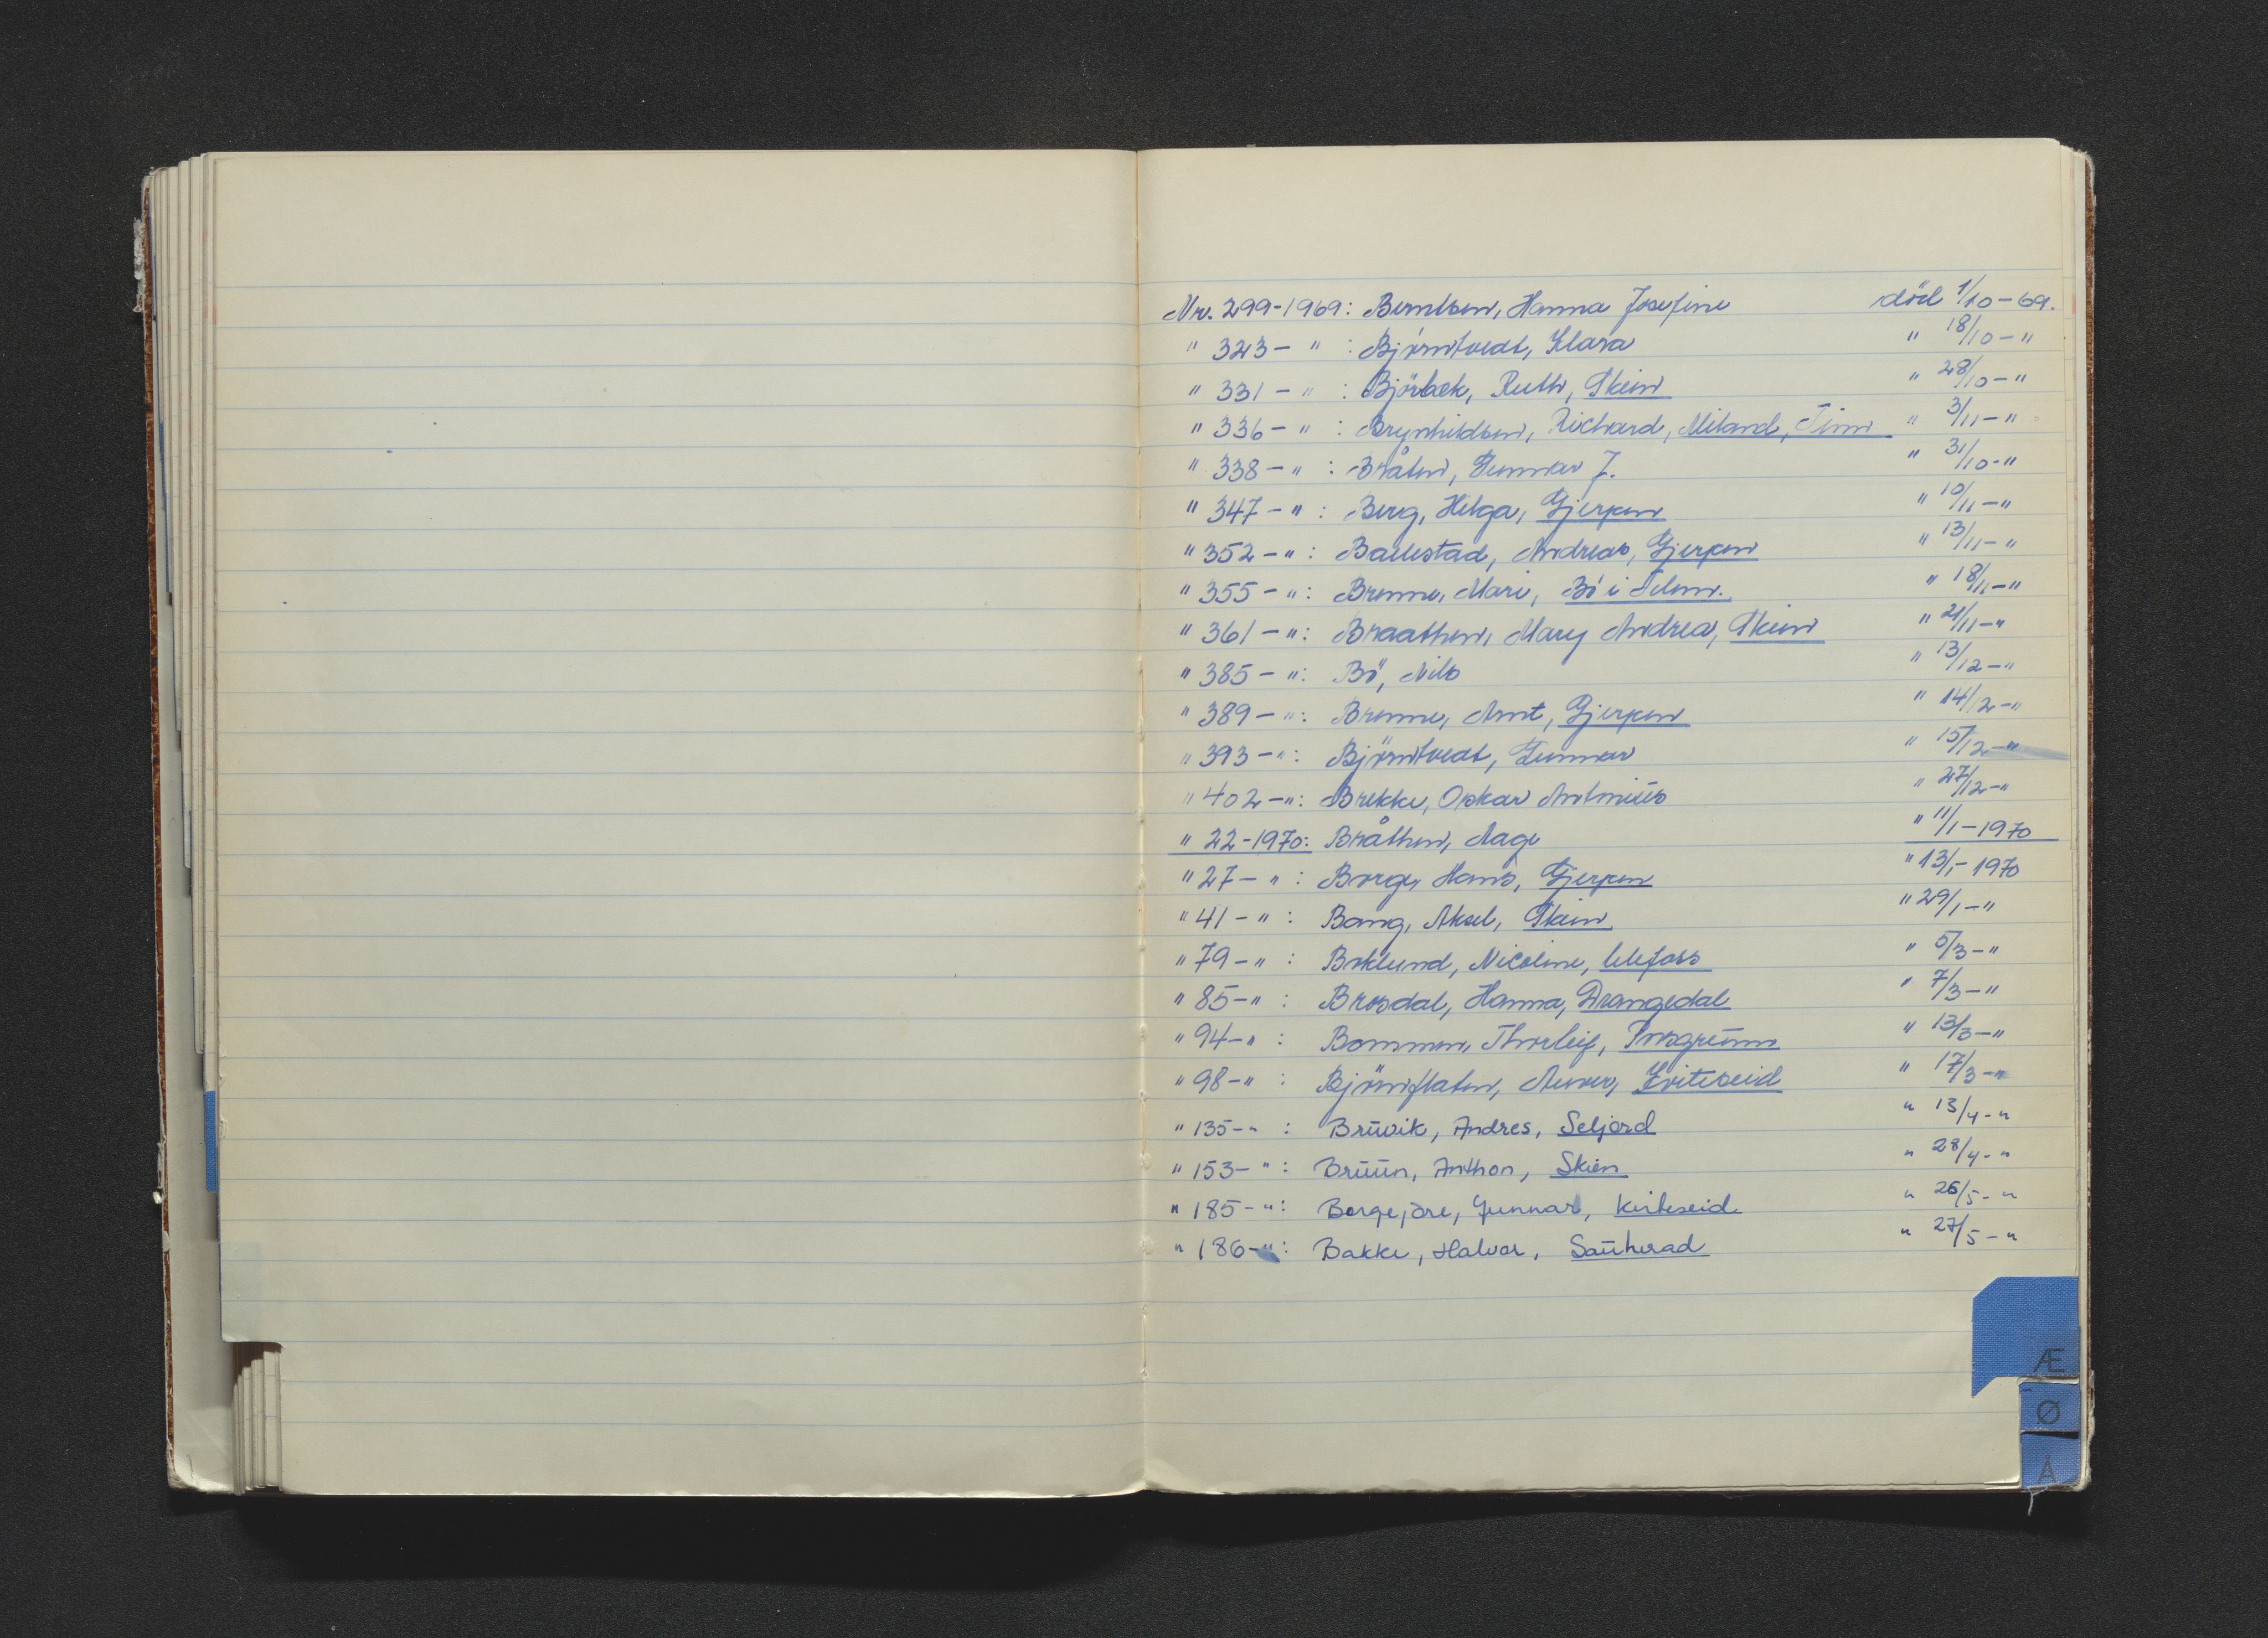 Nr. 299-1969: Berntsen, Hanna Josefine død 1/10-69.
" 323- " : Björntvedt, Klara " 18/10-"
" 331- " : Björbæk, Ruth, Skien " 28/10-"
" 336- " : Brynhildsen, Richard, Miland, Tinn " 3/11-"
" 338- " : Bråten, Gunnar J. " 31/10-"
" 347- " : Berg, Helga, Gjerpen " 10/11-"
" 352- " : Ballestad, Andreas, Gjerpen " 13/11-"
" 355- " : Brenne, Mari, Bö i Telem. " 18/11-"
" 361- " : Braathen, Mary Andrea, Skien " 21/11-"
" 385- " : Bö, Nils " 13/12-"
" 389- " : Brenne, Arnt, Gjerpen " 14/12-"
" 393- " : Björntvedt, Gunnar " 15/12-"
" 402- " : Brekke, Oskar Antonius " 27/12-"
" 22-1970: Bråthen, Aage " 11/1-1970
" 27- " : Borge, Hans, Gjerpen " 13/1-1970
" 41- " : Bang, Aksel, Skien " 29/1-"
" 79- " : Boklund, Nicoline, Ulefoss " 5/3-"
" 85- " : Brosdal, Hanna, Drangedal " 7/3-"
" 94- " : Bommen, Thorleif, Porsgrunn " 13/3-"
" 98- " : Björnflaten, Aunver, Kviteseid " 17/3-"
" 135- " : Bruvik, Andres, Seljord " 13/4-"
" 153- " : Bruun, Anthon, Skien " 28/4-"
" 185- " : Borgejore, Gunnar, Kviteseid " 26/5-"
" 186- " : Bakke, Halvor, Sauherad " 27/5-"
Æ
Ø
Å